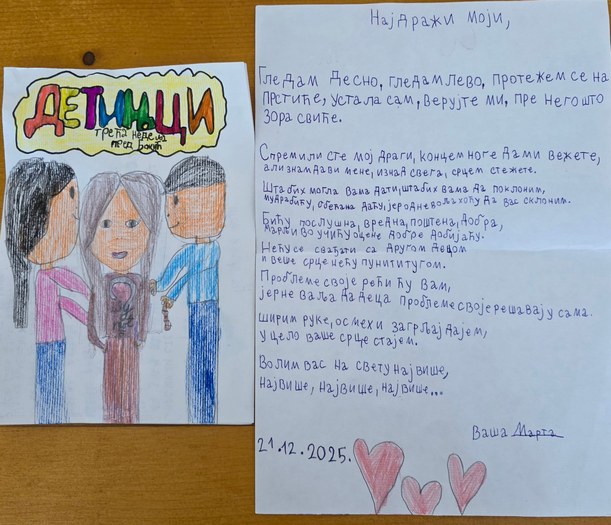 ДЕТИЊЦИ
трећа недеља
пред Божић
Најдражи моји,
Гледам десно, гледам лево, протежем се на
прстиће, устала сам, верујте ми, пре него што
зора свиће.
Спремили сте мој драги, концем ноге да ми вежете,
али знам да ви мене, изнад свега, срцем стежете.
Шта бих могла вама дати, шта бих вама да поклоним,
мудра бићу, обећана даћу, јер од невоља хоћу да вас склоним.
Бићу послушна, вредна, поштена, добра,
марљиво учићу оцене добре добијаћу.
Нећу се свађати са другом децом
и ваше срце нећу пунити тугом.
Проблеме своје рећи ћу вам,
јер не ваља да деца проблеме своје решавају сама.
Ширим руке, осмехи загрљај дајем,
у цело ваше срце стајем.
Волим вас на свету највише,
највише, највише, највише...
Ваша Марта
21.12.2025.